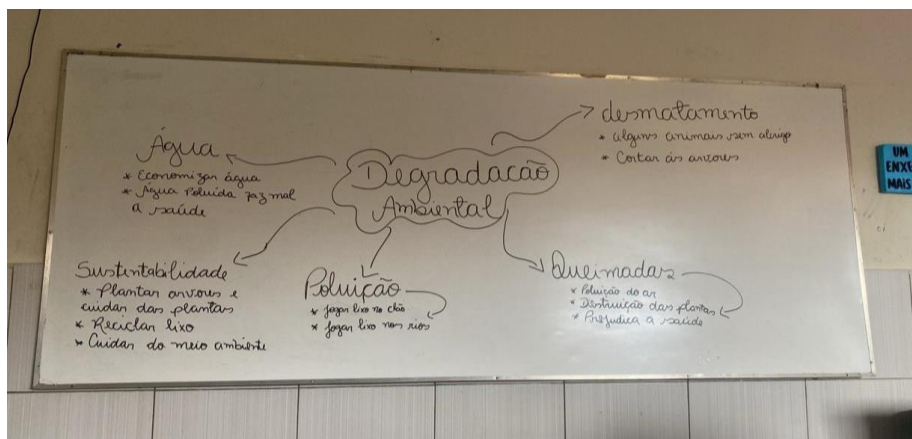 Degradacão
Ambiental
Água
* Economizar água
* Água Poluída faz mal
a saúde
desmatamento
* alguns animais sem abrigo
* Cortar ás arvores
Sustentabilidade
* Plantar arvores e
cuidar das plantas
* Reciclar lixo
* Cuidar do meio ambiente
Poluição
* jogar lixo no chão
* jogar lixo nos rios
Queimadas
* Poluição do ar
* Destruição das plantas
* Prejudica a saúde
UM
ENXE
MAIS